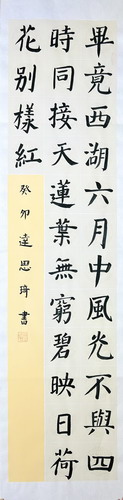 畢竟西湖六月中風光不與四
時同接天蓮葉無窮碧映日荷
花别樣紅
癸卯達思琦書